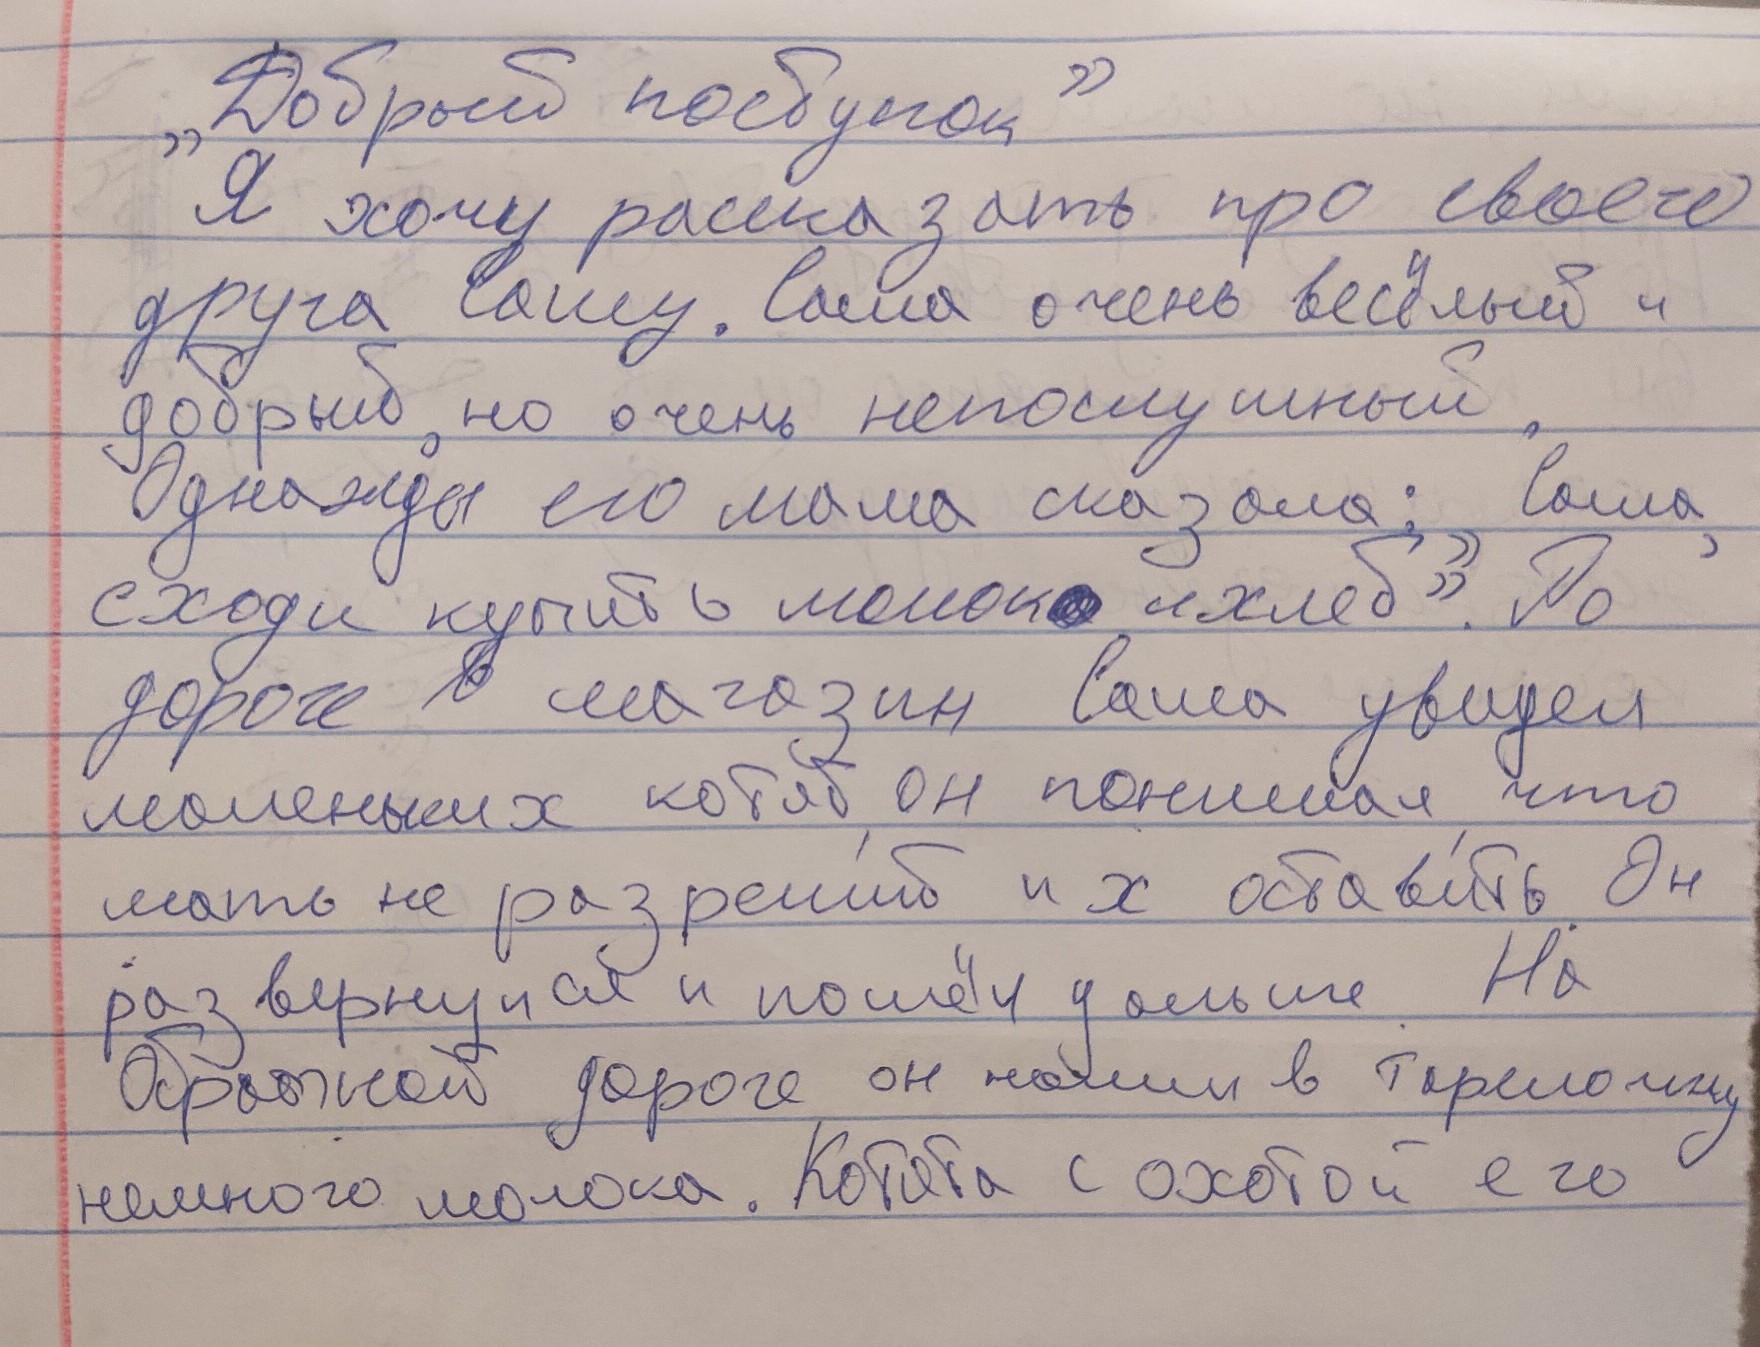 „Добрый поступок”
Я хочу рассказать про своего
друга Сашу. Саша очень весёлый и
добрый, но очень непослушный.
Однажды его мама сказала: „Саша,
сходи купить молоко и хлеб”. По
дороге в магазин Саша увидел
маленьких котят, он понимал что
мать не разрешит их оставить. Он
развернулся и пошёл дальше. На
Обратной дороге он налил в тарелочку
немного молока. Котята с охотой его